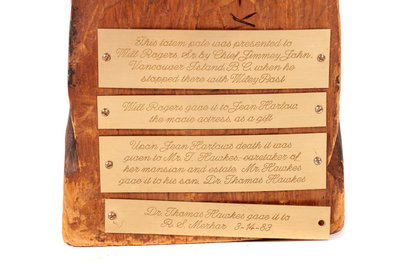 This totem pole was presented to
Will Rogers, Sr. by Chief Jimmey John,
Vancouver Island, B.C. when he
stopped there with Wiley Post
Will Rogers gave it to Jean Harlow,
the movie actress, as a gift
Upon Jean Harlow's death it was
given to Mr. T. Hawkes, caretaker of
her mansion and estate. Mr. Hawkes
gave it to his son, Dr. Thomas Hawkes
Dr. Thomas Hawkes gave it to
R. S. Merhar 3-14-83